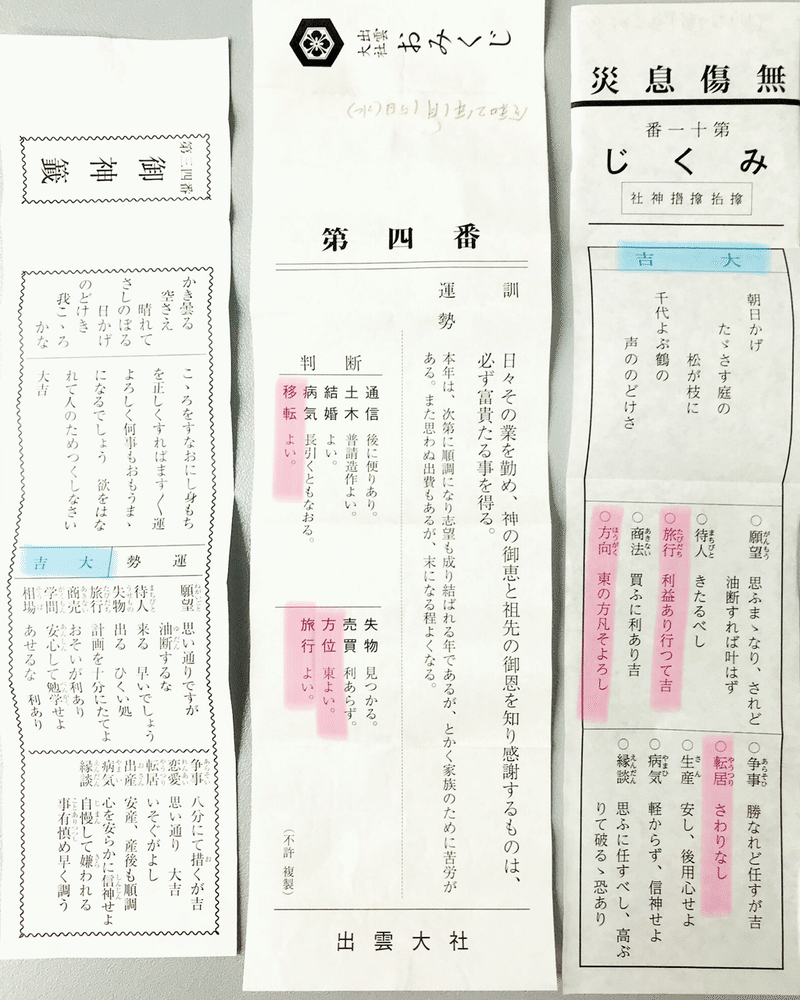 無傷息災
第十一番
みくじ
大吉
朝日かげ
たゞさす庭の
松が枝に
千代よぶ鶴の
声ののどけさ
○願望 思ふまゝなり、されど
油断すれば叶はず
○待人 きたるべし
○旅行 利益あり行つて吉
○商法 買ふに利あり吉
○方向 東の方凡そよろし
○争事 勝なれど任すが吉
○転居 さわりなし
○生産 安し、後用心せよ
○病気 軽からず、信神せよ
○縁談 思ふに任すべし、高ぶ
りて破るゝ恐あり
出雲大社 おみくじ
第四番
訓 日々その業を勤め、神の御恵と祖先の御恩を知り感謝するものは、
必ず富貴たる事を得る。
運勢 本年は、次第に順調になり志望も成り結ばれる年であるが、とかく家族のために苦労が
ある。また思わぬ出費もあるが、末になる程よくなる。
判断
通信 後に便りあり。
土木 普請造作よい。
結婚 よい。
病気 長引くともなおる。
移転 よい。
失物 見つかる。
売買 利あらず。
方位 東よい。
旅行 よい。
(不許複製)
出雲大社
第三四番
御神籤
かき曇る
空さえ
晴れて
さしのぼる
日かげ
のどけき
我こゝろ
かな
こゝろをすなおにし身もち
を正しくすればます〱運
よろしく何事もおもうまゝ
になるでしょう 欲をはな
れて人のためつくしなさい
大吉
運勢 大吉
願望 思い通りですが
油断するな
待人 来る 早いでしょう
失物 出る ひくい処
旅行 計画を十分にたてよ
商売 おそいが利あり
学問 安心して勉学せよ
相場 あせるな 利あり
争事 八分にて措くが吉
恋愛 思い通り 大吉
転居 いそぐがよし
出産 安産、産後も順調
病気 心を安らかに信神せよ
縁談 自慢して嫌われる
事有慎め早く調う